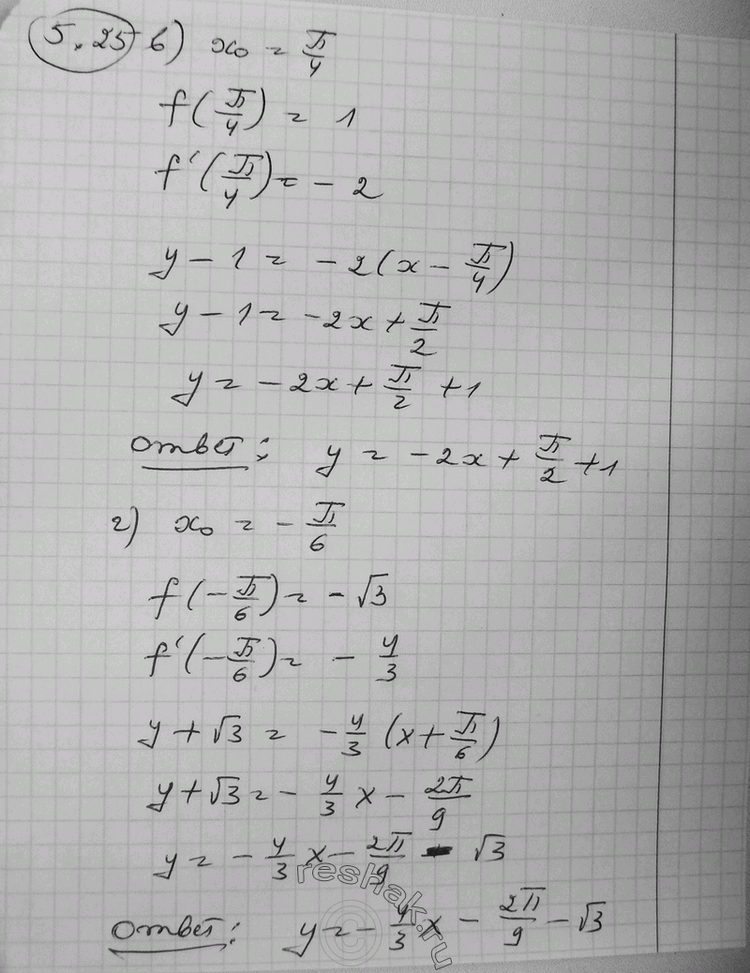 5.25 в) x₀ = π/4
f(π/4) = 1
f'(π/4) = -2
y - 1 = -2(x - π/4)
y - 1 = -2x + π/2
y = -2x + π/2 + 1
Ответ: y = -2x + π/2 + 1
г) x₀ = -π/6
f(-π/6) = -√3
f'(-π/6) = -4/3
y + √3 = -4/3 (x + π/6)
y + √3 = -4/3 x - 2π/9
y = -4/3 x - 2π/9 - √3
Ответ: y = -4/3 x - 2π/9 - √3
reshak.ru